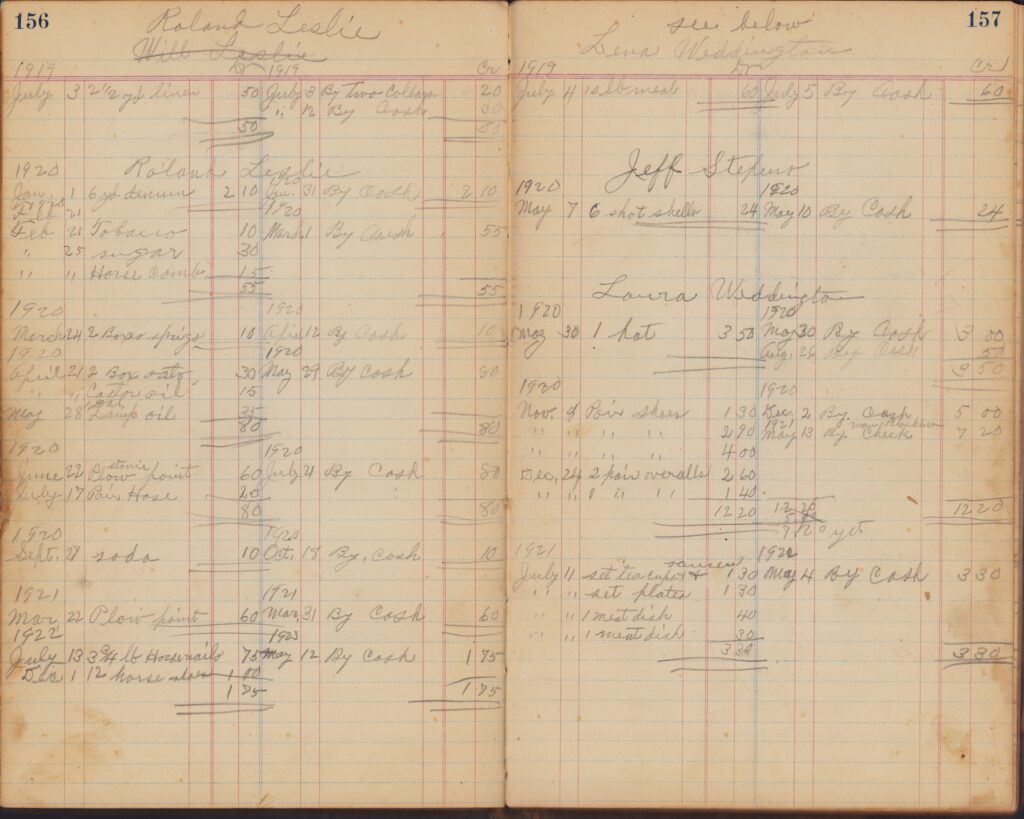 156
Roland Leslie
Will Leslie
1919 Dr 1919 Cr
July 3 2 1/2 yd linen 50 July 3 By two Collars 20
" 12 By Cash 30
50 50
1920 Roland Leslie
1920
Jan. 1 6 yd denim 2 10 Jan. 31 By Cash 2 10
1920 1920
Feb 21
Feb 21 Tobacco 10 March 1 By Cash 55
" 25 sugar 30
" " Horse Comb 15
55 55
1920 1920
March 24 2 Boxes springs 10 April 12 By Cash 10
1920 1920
April 21 2 Box oats 30 May 29 By Cash 80
" " Castor oil 15
May 28 Lamp oil 35
80 80
1920 1920
June 22 Plow point 60 July 21 By Cash 80
July 17 Pair Hose 20
80 80
1920 1920
Sept. 21 soda 10 Oct. 18 By Cash 10
1921 1921
Mar 22 Plow point 60 Mar 31 By Cash 60
1922 1923
July 13 3 3/4 lb Horsenails 75 May 12 By Cash 1 75
Dec 1 12 horse shoes 1 00
1 75 1 75
157
see below
Lena Weddington
1919 Dr Cr
July 4 10 lb meat 60 July 5 By Cash 60
Jeff Stepero
1920 1920
May 7 6 shot shells 24 May 10 By Cash 24
Laura Weddington
1920 1920
May 30 1 hat 3 50 May 30 By Cash 3 00
Aug. 26 By Cash 50
3 50
1920 1920
Nov. 9 Pair shoes 1 30 Dec. 2 By Cash 5 00
" " " " 2 90 1921 May 13 By Check 7 20
" " " " 4 00
Dec. 24 2 pair overalls 2 60
" " " " " 1 40
12 20 12 20 12 20
5 00
7 20 yet
1921 1922
July 11 set tea cups + 1 30 May 4 By Cash 3 30
" " set plates 1 30
" " 1 meat dish 40
" " 1 meat dish 30
3 30 3 30